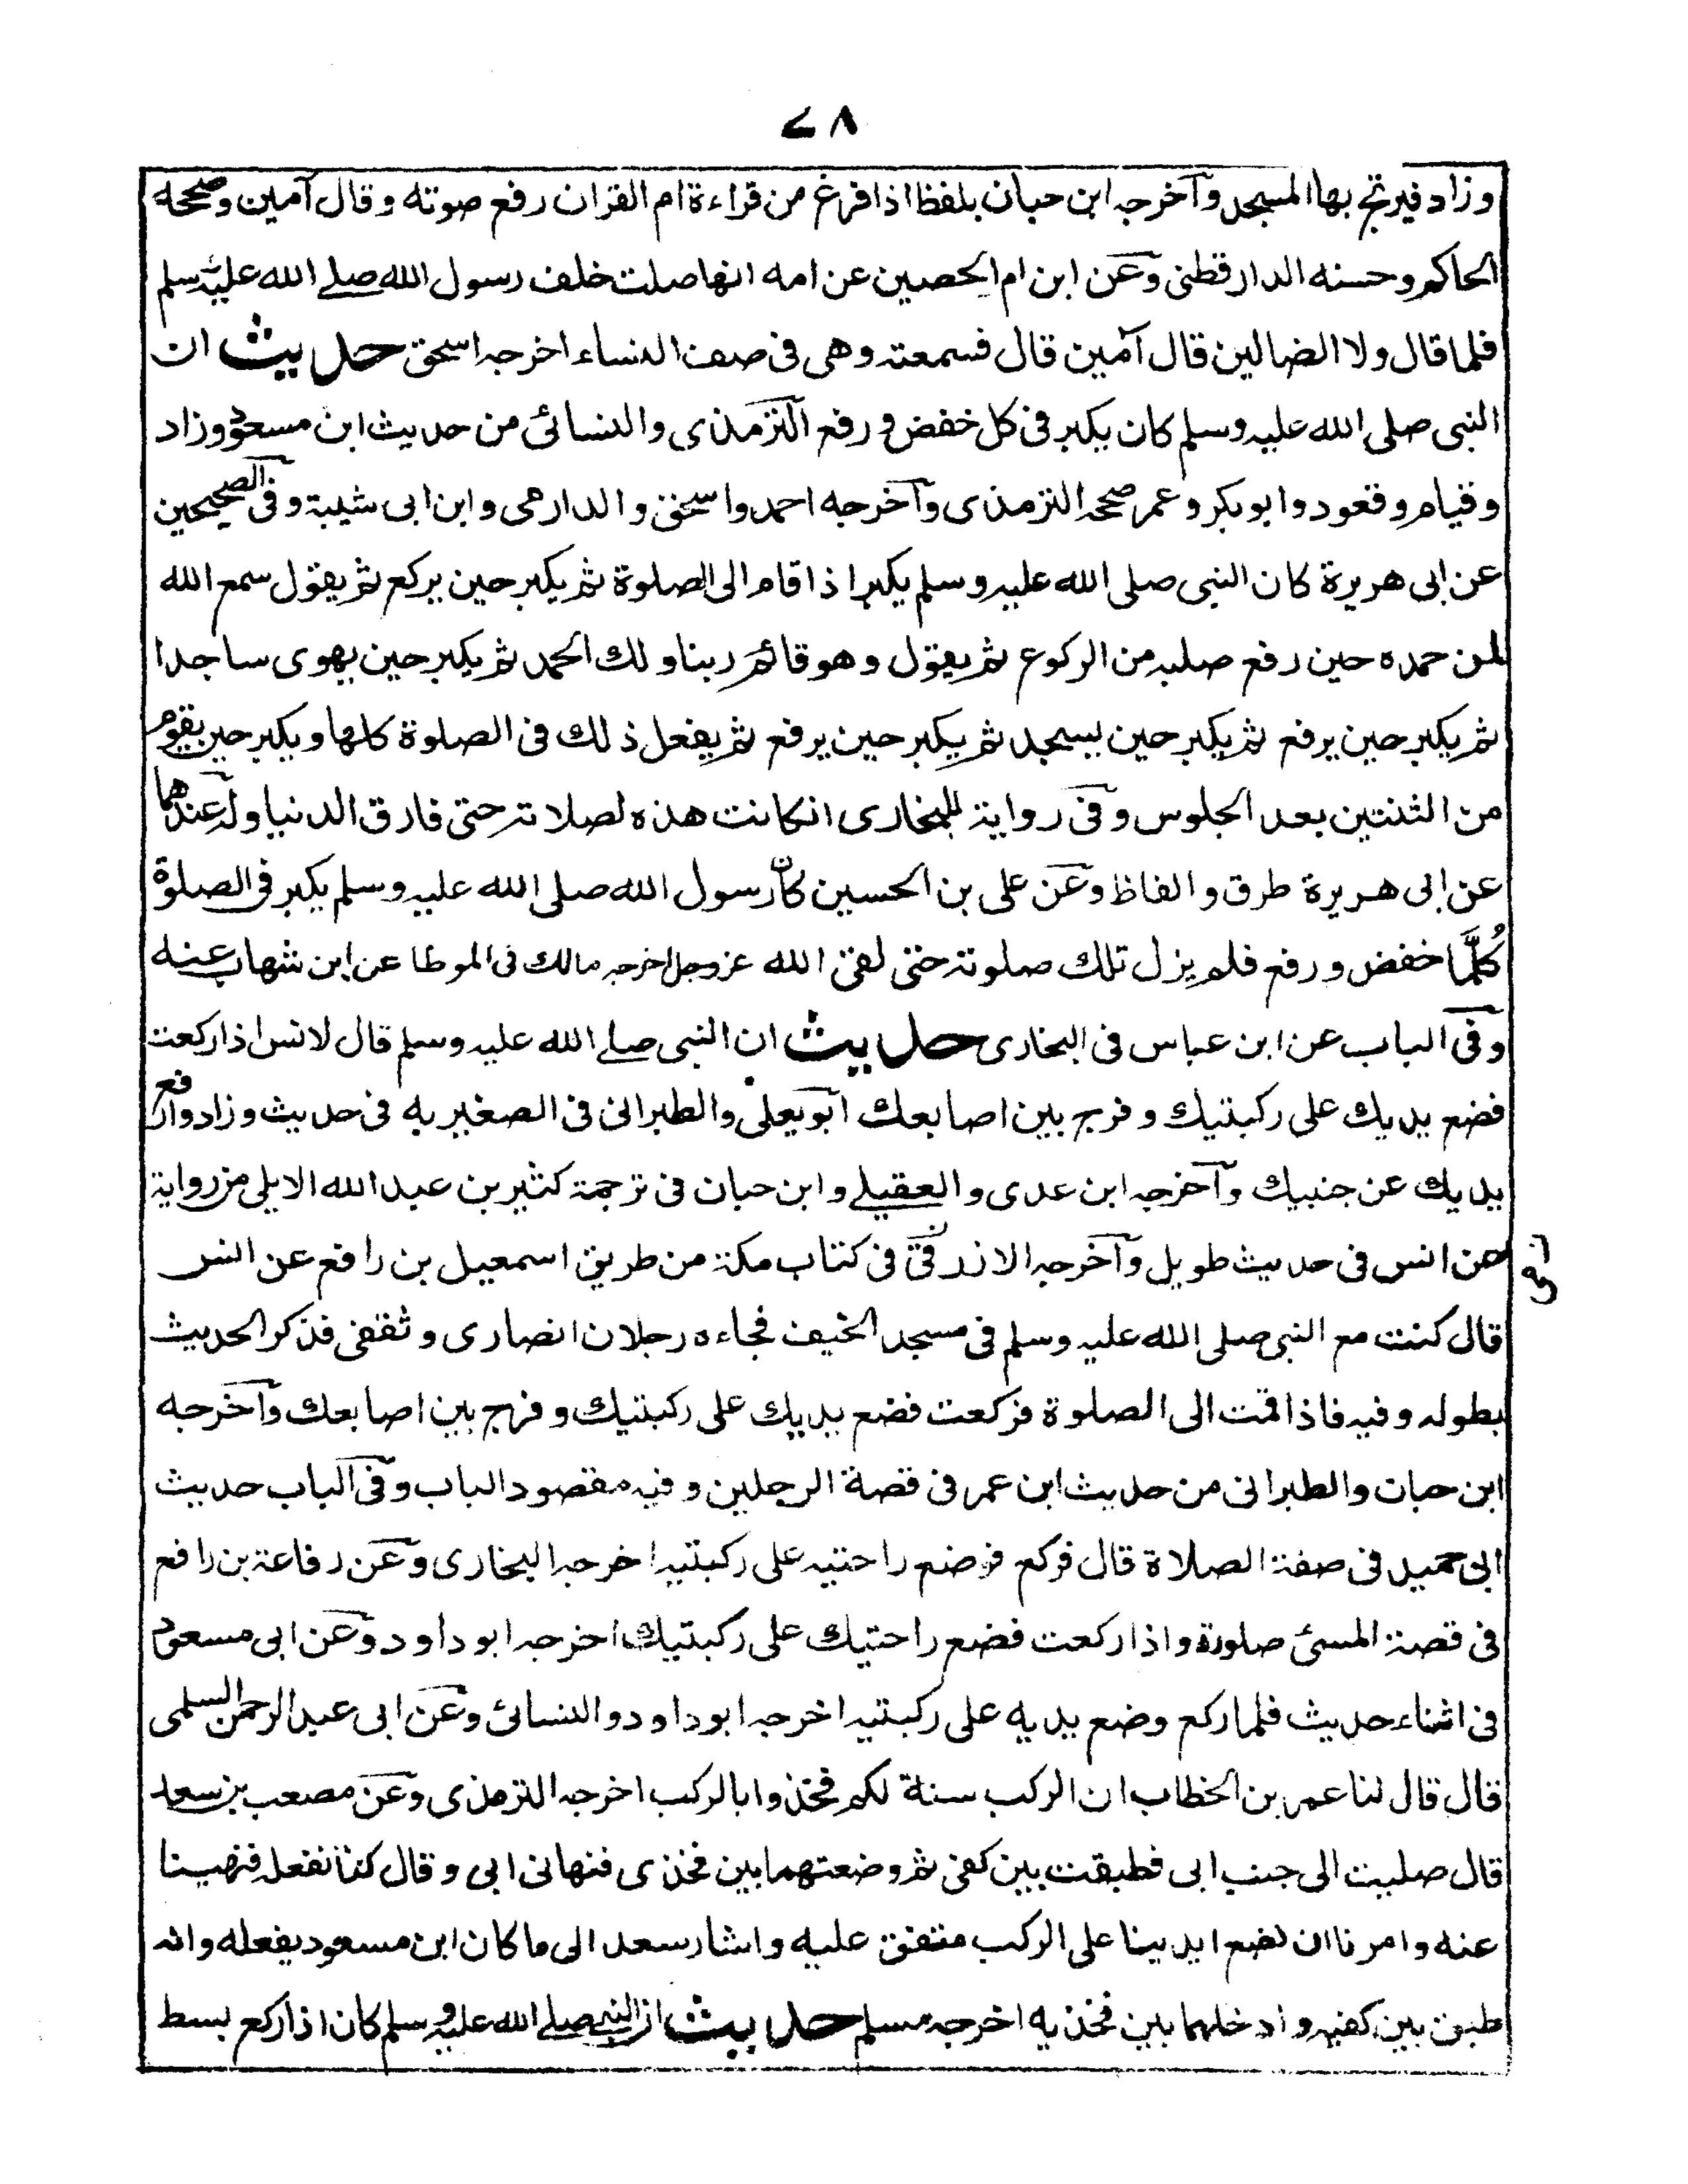 ٧٨
وزاد فيرتج بها المسجد وآخرجه ابن حبان بلفظ اذا فرغ من قراءة ام القران رفع صوته وقال آمين وصححه
الحاكم وحسنه الدارقطنى وعن ابن ام الحصين عن امه انها صلت خلف رسول الله صلے الله عليه وسلم
فلما قال ولا الضالين قال آمين قال فسمعته وهى فى صف النساء اخرجه اسحق حديث ان
النبى صلى الله عليه وسلم كان يكبر فى كل خفض ورفع الترمذى والنسائى من حديث ابن مسعود وزاد
وقيام وقعود وابوبكر وعمر صححه الترمذى وآخرجه احمد واسحق والدارمى وابن ابى شيبة وفى الصحيحين
عن ابى هريرة كان النبى صلى الله عليه وسلم يكبر اذا قام الى الصلوة ثم يكبر حين يركع ثم يقول سمع الله
لمن حمده حين رفع صلبه من الركوع ثم يقول وهو قائم ربنا ولك الحمد ثم يكبر حين يهوى ساجدا
ثم يكبر حين يرفع ثم يكبر حين يسجد ثم يكبر حين يرفع ثم يفعل ذلك فى الصلوة كلها ويكبر حين يقوم
من الثنتين بعد الجلوس وفى رواية للبخارى انكانت هذه لصلاته حتى فارق الدنيا وله عندهما
عن ابى هريرة طرق والفاظ وعن على بن الحسين كان رسول الله صلى الله عليه وسلم يكبر فى الصلوة
كُلَّما خفض ورفع فلم يزل تلك صلوته حتى لقى الله عزوجل اخرجه مالك فى الموطا عن ابن شهاب عنه
وفى الباب عن ابن عباس فى البخارى حديث ان النبى صلے الله عليه وسلم قال لانس اذا ركعت
فضع يديك على ركبتيك وفرج بين اصابعك ابو يعلى والطبرانى فى الصغير به فى حديث وزاد وارفع
يديك عن جنبيك وآخرجه ابن عدى والعقيلے وابن حبان فى ترجمة كثير بن عبد الله الابلى من رواية
عن انس فى حديث طويل وآخرجه الازرقى فى كتاب مكة من طريق اسمعيل بن رافع عن انس
قال كنت مع النبى صلى الله عليه وسلم فى مسجد الخيف فجاءه رجلان انصارى وثقفى فذكر الحديث
بطوله وفيه فاذا قمت الى الصلوة فركعت فضع يديك على ركبتيك وفرج بين اصابعك وآخرجه
ابن حبان والطبرانى من حديث ابن عمر فى قصة الرجلين وفيه مقصود الباب وفى الباب حديث
ابى حميد فى صفة الصلاة قال فركع فوضع راحتيه على ركبتيه اخرجه البخارى وعن رفاعة بن رافع
فى قصة المسئ صلوته واذا ركعت فضع راحتيك على ركبتيك اخرجه ابو داود وعن ابى مسعود
فى اثناء حديث فلما ركع وضع يديه على ركبتيه اخرجه ابو داود والنسائى وعن ابى عبد الرحمن السلمى
قال قال لنا عمر بن الخطاب ان الركب سنة لكم فخذوا بالركب اخرجه الترمذى وعن مصعب بن سعد
قال صليت الى جنب ابى فطبقت بين كفى ثم وضعتهما بين فخذى فنهانى ابى وقال كنا نفعله فنهينا
عنه وامرنا ان نضع ايدينا على الركب متفق عليه واشار سعد الى ما كان ابن مسعود يفعله وانه
طبق بين كفيه وادخلهما بين فخذيه اخرجه مسلم حديث ان النبى صلے الله عليه وسلم كان اذا ركع بسط